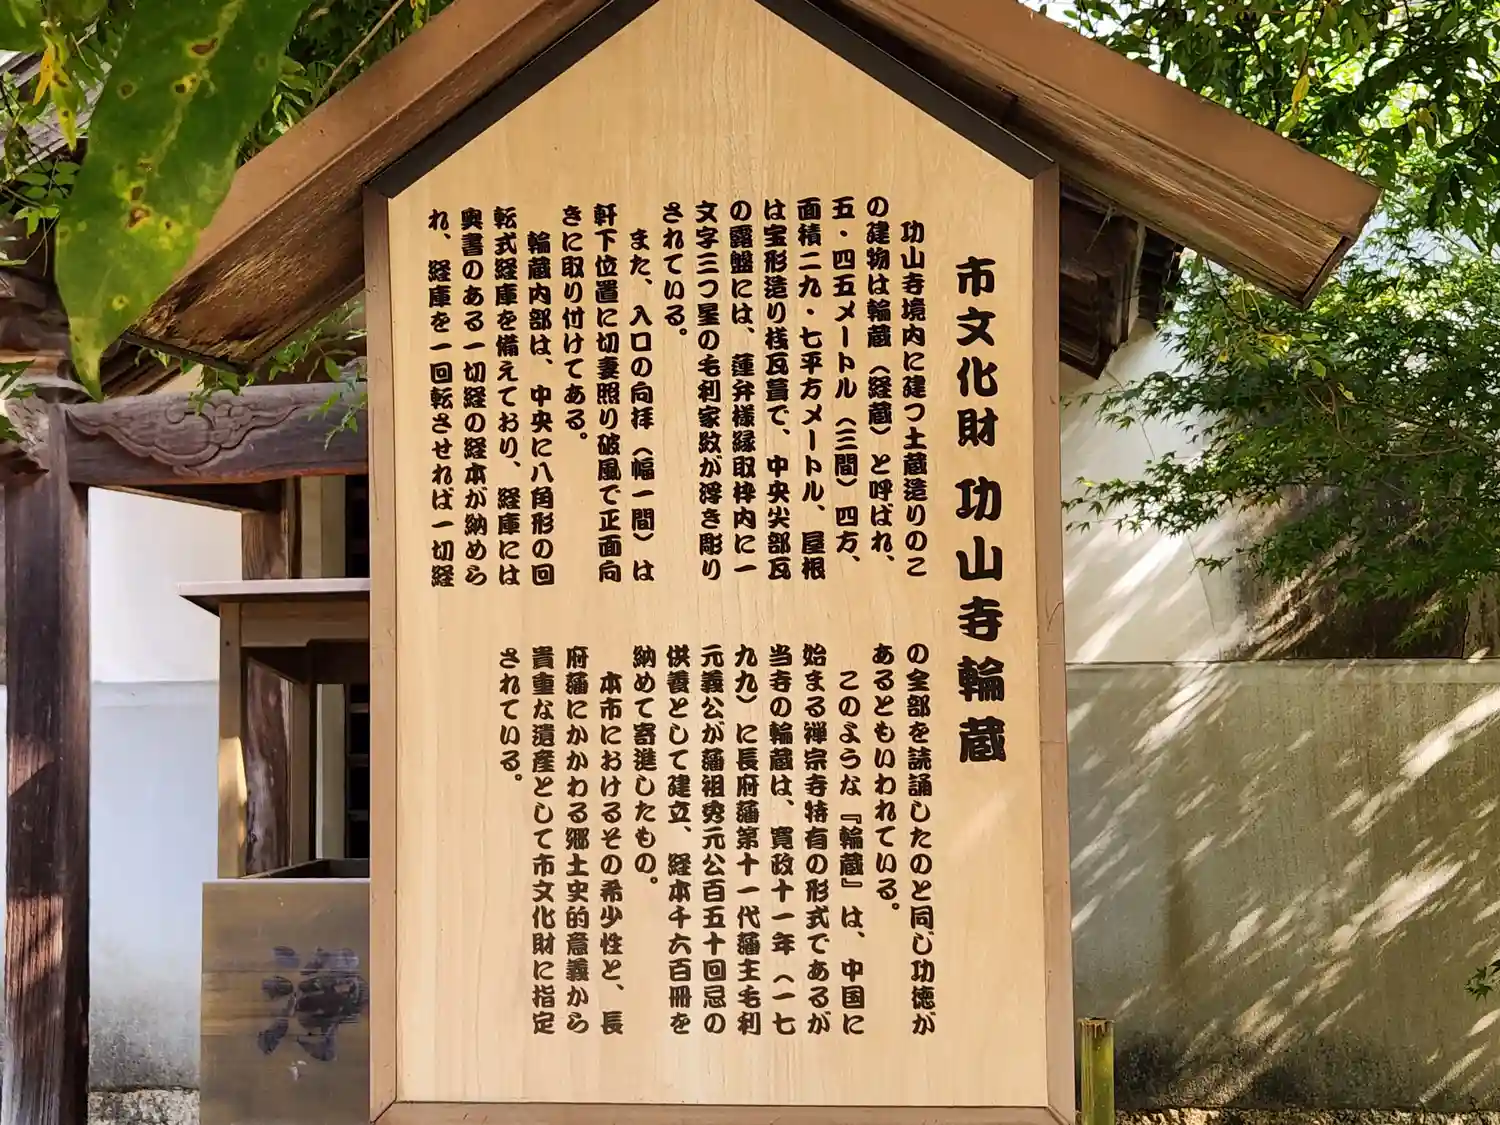 市文化財 功山寺輪蔵
功山寺境内に建つ土蔵造りのこ
の建物は輪蔵（経蔵）と呼ばれ、
五・四五メートル（三間）四方、
面積二九・七平方メートル、屋根
は宝形造り桟瓦葺で、中央尖部瓦
の露盤には、蓮弁様縁取枠内に一
文字三つ星の毛利家紋が浮き彫り
されている。
また、入口の向拝（幅一間）は
軒下位置に切妻照り破風で正面向
きに取り付けてある。
輪蔵内部は、中央に八角形の回
転式経庫を備えており、経庫には
奥書のある一切経の経本が納めら
れ、経庫を一回転させれば一切経
の全部を読誦したのと同じ功徳が
あるともいわれている。
このような『輪蔵』は、中国に
始まる禅宗寺特有の形式であるが
当寺の輪蔵は、寛政十一年（一七
九九）に長府藩第十一代藩主毛利
元義公が藩祖秀元公百五十回忌の
供養として建立、経本千六百冊を
納めて寄進したもの。
本市におけるその希少性と、長
府藩にかかわる郷土史的意義から
貴重な遺産として市文化財に指定
されている。
浄